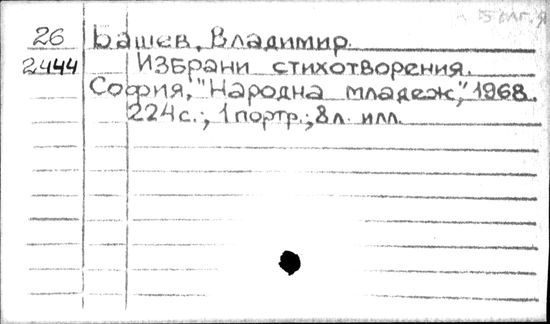 Болг. я
26 Башев, Владимир.
2444 Избрани стихотворения.
София, "Народна младеж", 1968.
224 с.; 1 портр.; 8 л. илл.